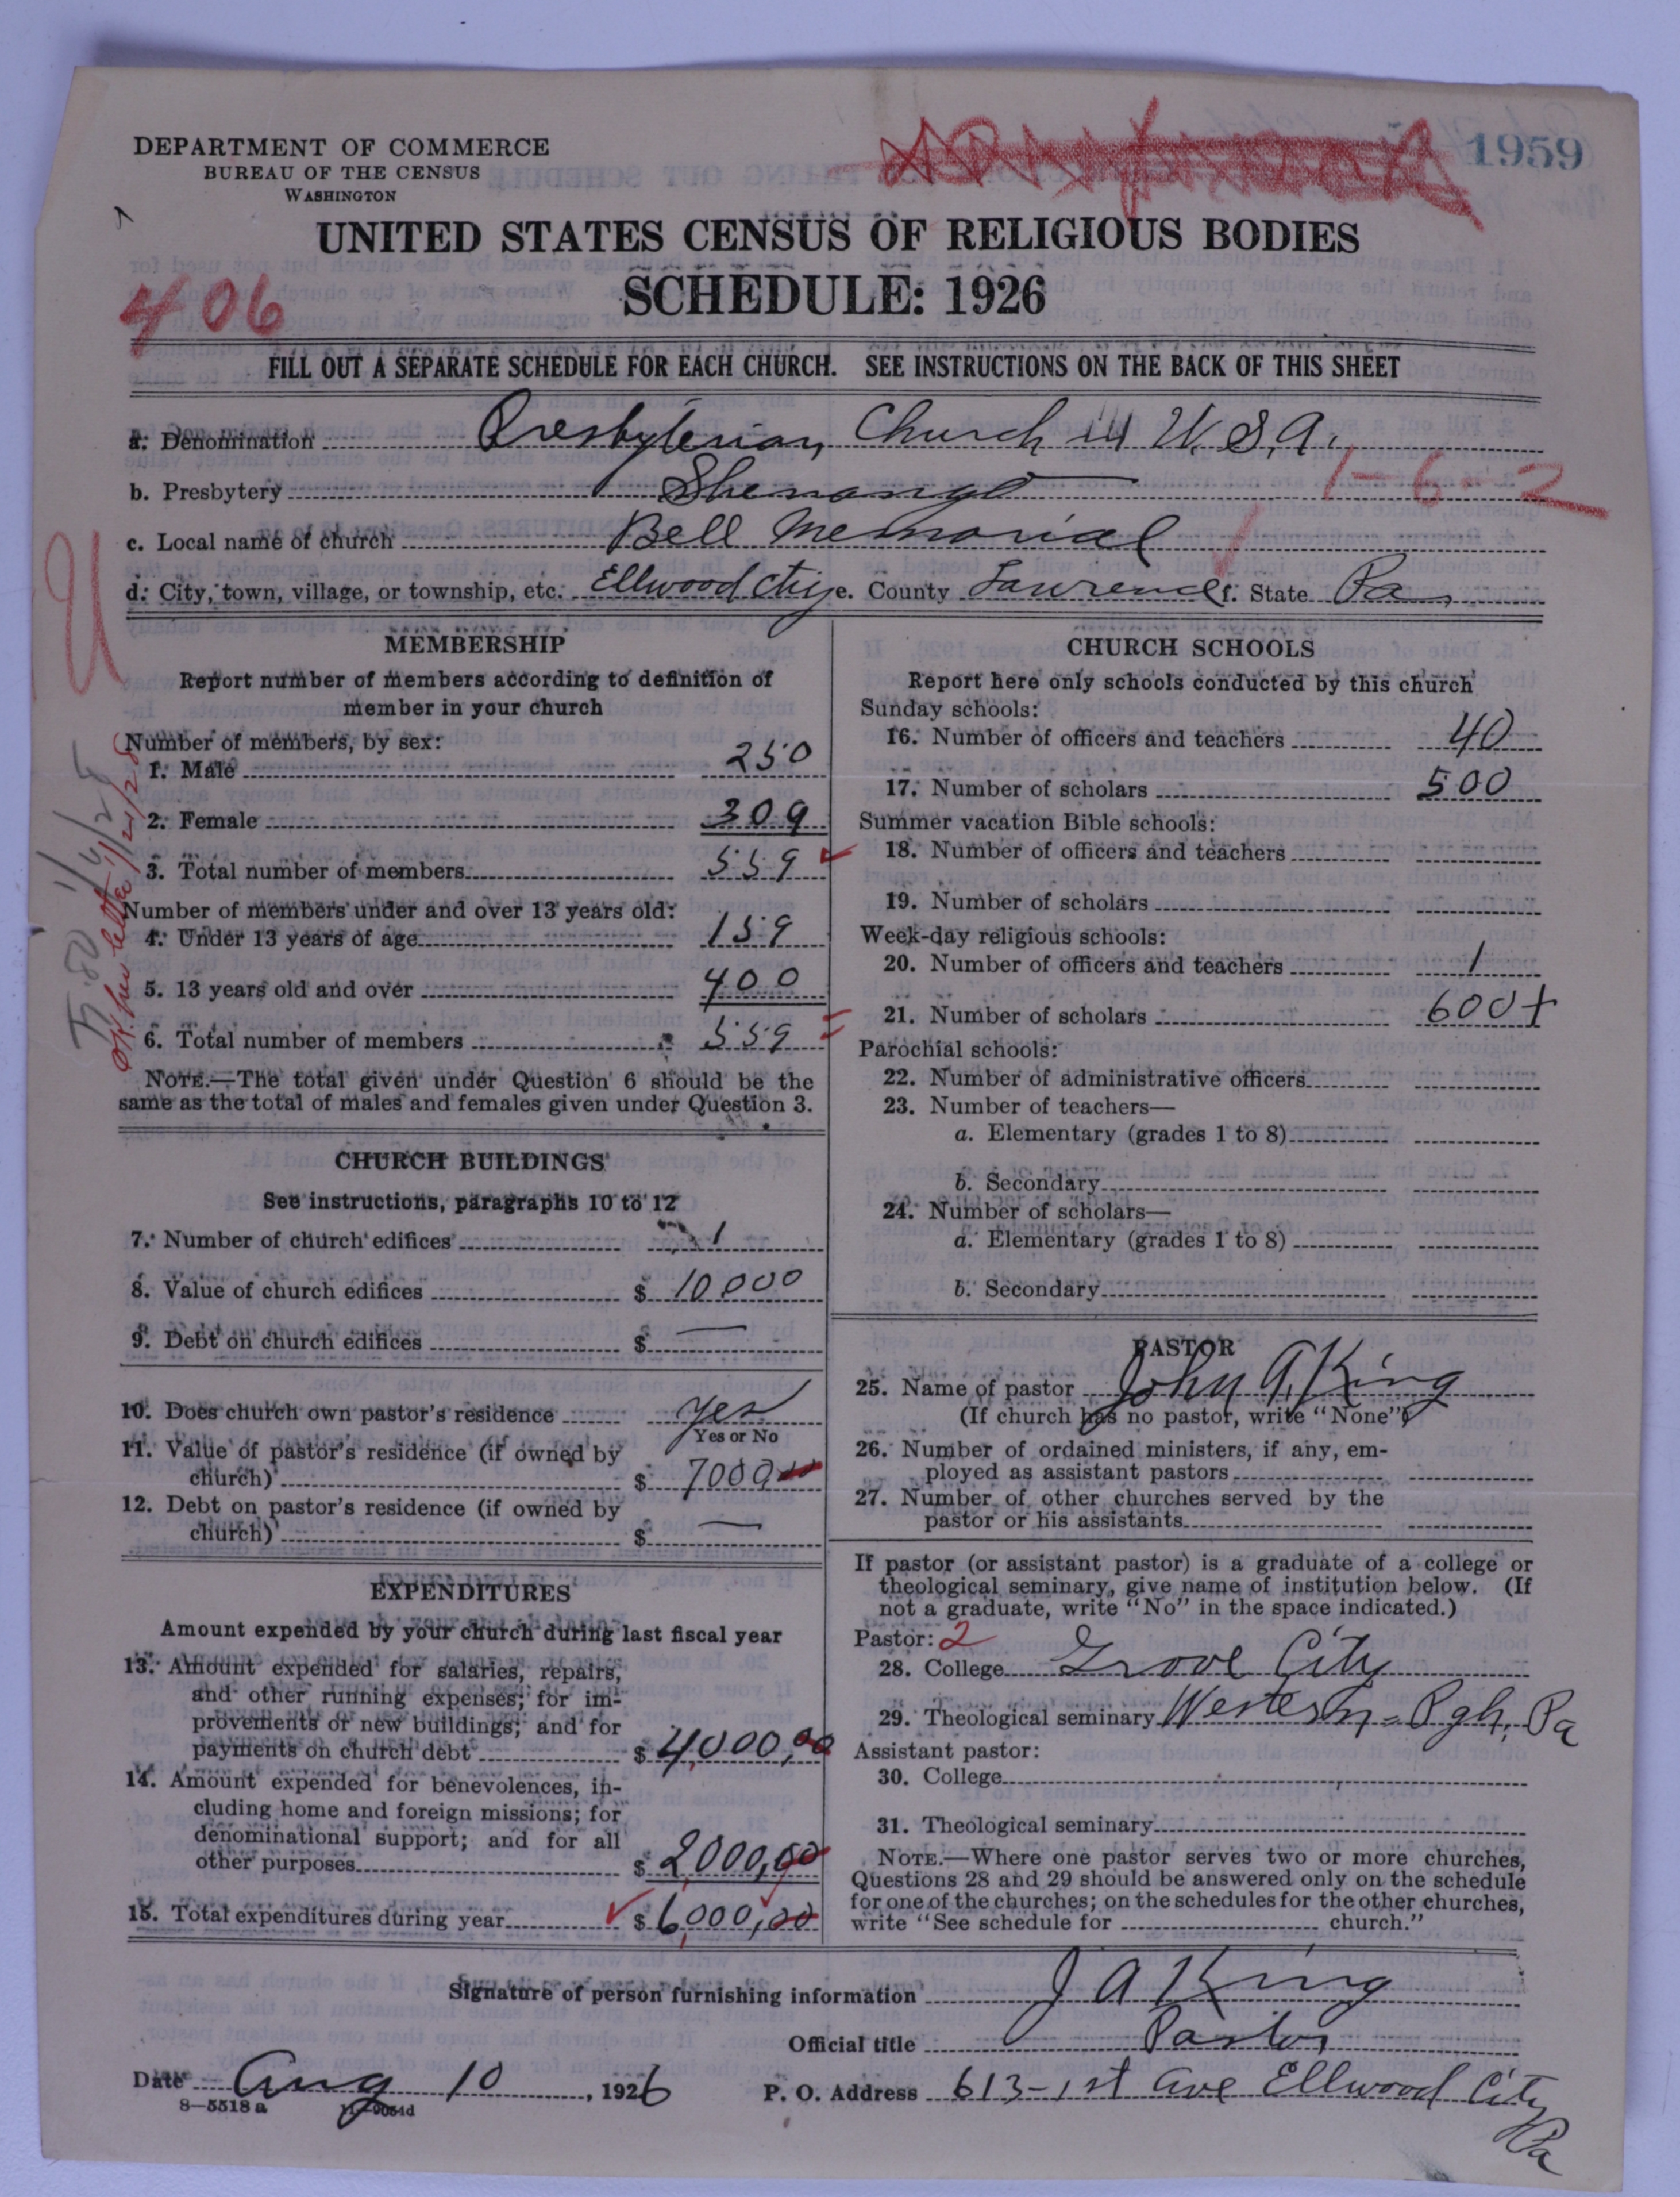 DEPARTMENT OF COMMERCE
BUREAU OF THE CENSUS
WASHINGTON
1959
UNITED STATES CENSUS OF RELIGIOUS BODIES
SCHEDULE: 1926
406
FILL OUT A SEPARATE SCHEDULE FOR EACH CHURCH. SEE INSTRUCTIONS ON THE BACK OF THIS SHEET
a. Denomination Presbyterian Church in U.S.A.
b. Presbytery Shenango
1-6-2
c. Local name of church Bell Memorial
d. City, town, village, or township, etc. Ellwood City e. County Lawrence f. State Pa
MEMBERSHIP
Report number of members according to definition of
member in your church
Number of members, by sex:
1. Male 250
2. Female 309
3. Total number of members 559
Number of members under and over 13 years old:
4. Under 13 years of age 159
5. 13 years old and over 400
6. Total number of members 559
NOTE.—The total given under Question 6 should be the
same as the total of males and females given under Question 3.
CHURCH BUILDINGS
See instructions, paragraphs 10 to 12
7. Number of church edifices 1
8. Value of church edifices $ 10000
9. Debt on church edifices $ —
10. Does church own pastor's residence yes
Yes or No
11. Value of pastor's residence (if owned by
church) $ 7000
12. Debt on pastor's residence (if owned by
church) $ —
EXPENDITURES
Amount expended by your church during last fiscal year
13. Amount expended for salaries, repairs,
and other running expenses; for im-
provements or new buildings; and for
payments on church debt $ 4,000,00
14. Amount expended for benevolences, in-
cluding home and foreign missions; for
denominational support; and for all
other purposes $ 2,000,00
15. Total expenditures during year $ 6,000,00
CHURCH SCHOOLS
Report here only schools conducted by this church
Sunday schools:
16. Number of officers and teachers 40
17. Number of scholars 500
Summer vacation Bible schools:
18. Number of officers and teachers
19. Number of scholars
Week-day religious schools:
20. Number of officers and teachers 1
21. Number of scholars 600+
Parochial schools:
22. Number of administrative officers
23. Number of teachers—
a. Elementary (grades 1 to 8)
b. Secondary
24. Number of scholars—
a. Elementary (grades 1 to 8)
b. Secondary
PASTOR
25. Name of pastor John A. King
(If church has no pastor, write "None")
26. Number of ordained ministers, if any, em-
ployed as assistant pastors
27. Number of other churches served by the
pastor or his assistants
If pastor (or assistant pastor) is a graduate of a college or
theological seminary, give name of institution below. (If
not a graduate, write "No" in the space indicated.)
Pastor: 2
28. College Grove City
29. Theological seminary Western - Pgh, Pa
Assistant pastor:
30. College
31. Theological seminary
NOTE.—Where one pastor serves two or more churches,
Questions 28 and 29 should be answered only on the schedule
for one of the churches; on the schedules for the other churches,
write "See schedule for church."
Signature of person furnishing information J A King
Official title Pastor
Date Aug 10, 1926 P. O. Address 613-1st Ave Ellwood City
Pa
8—5518a